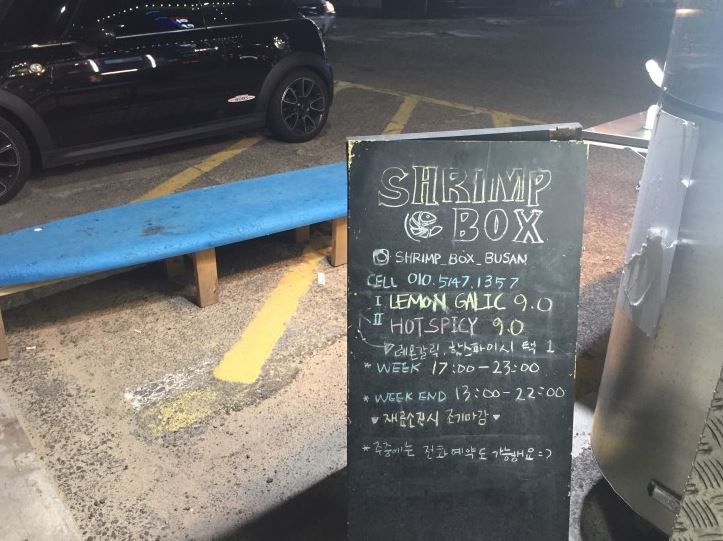 SHRIMP
BOX
SHRIMP_BOX_BUSAN
CELL 010.5147.1357
I LEMON GALIC 9.0
II HOT SPICY 9.0
레몬갈릭, 핫스파이시 택 1
* WEEK 17:00-23:00
* WEEK END 13:00-22:00
♥ 재료소진시 조기마감 ♥
* 주중에는 전화예약도 가능해요 =)